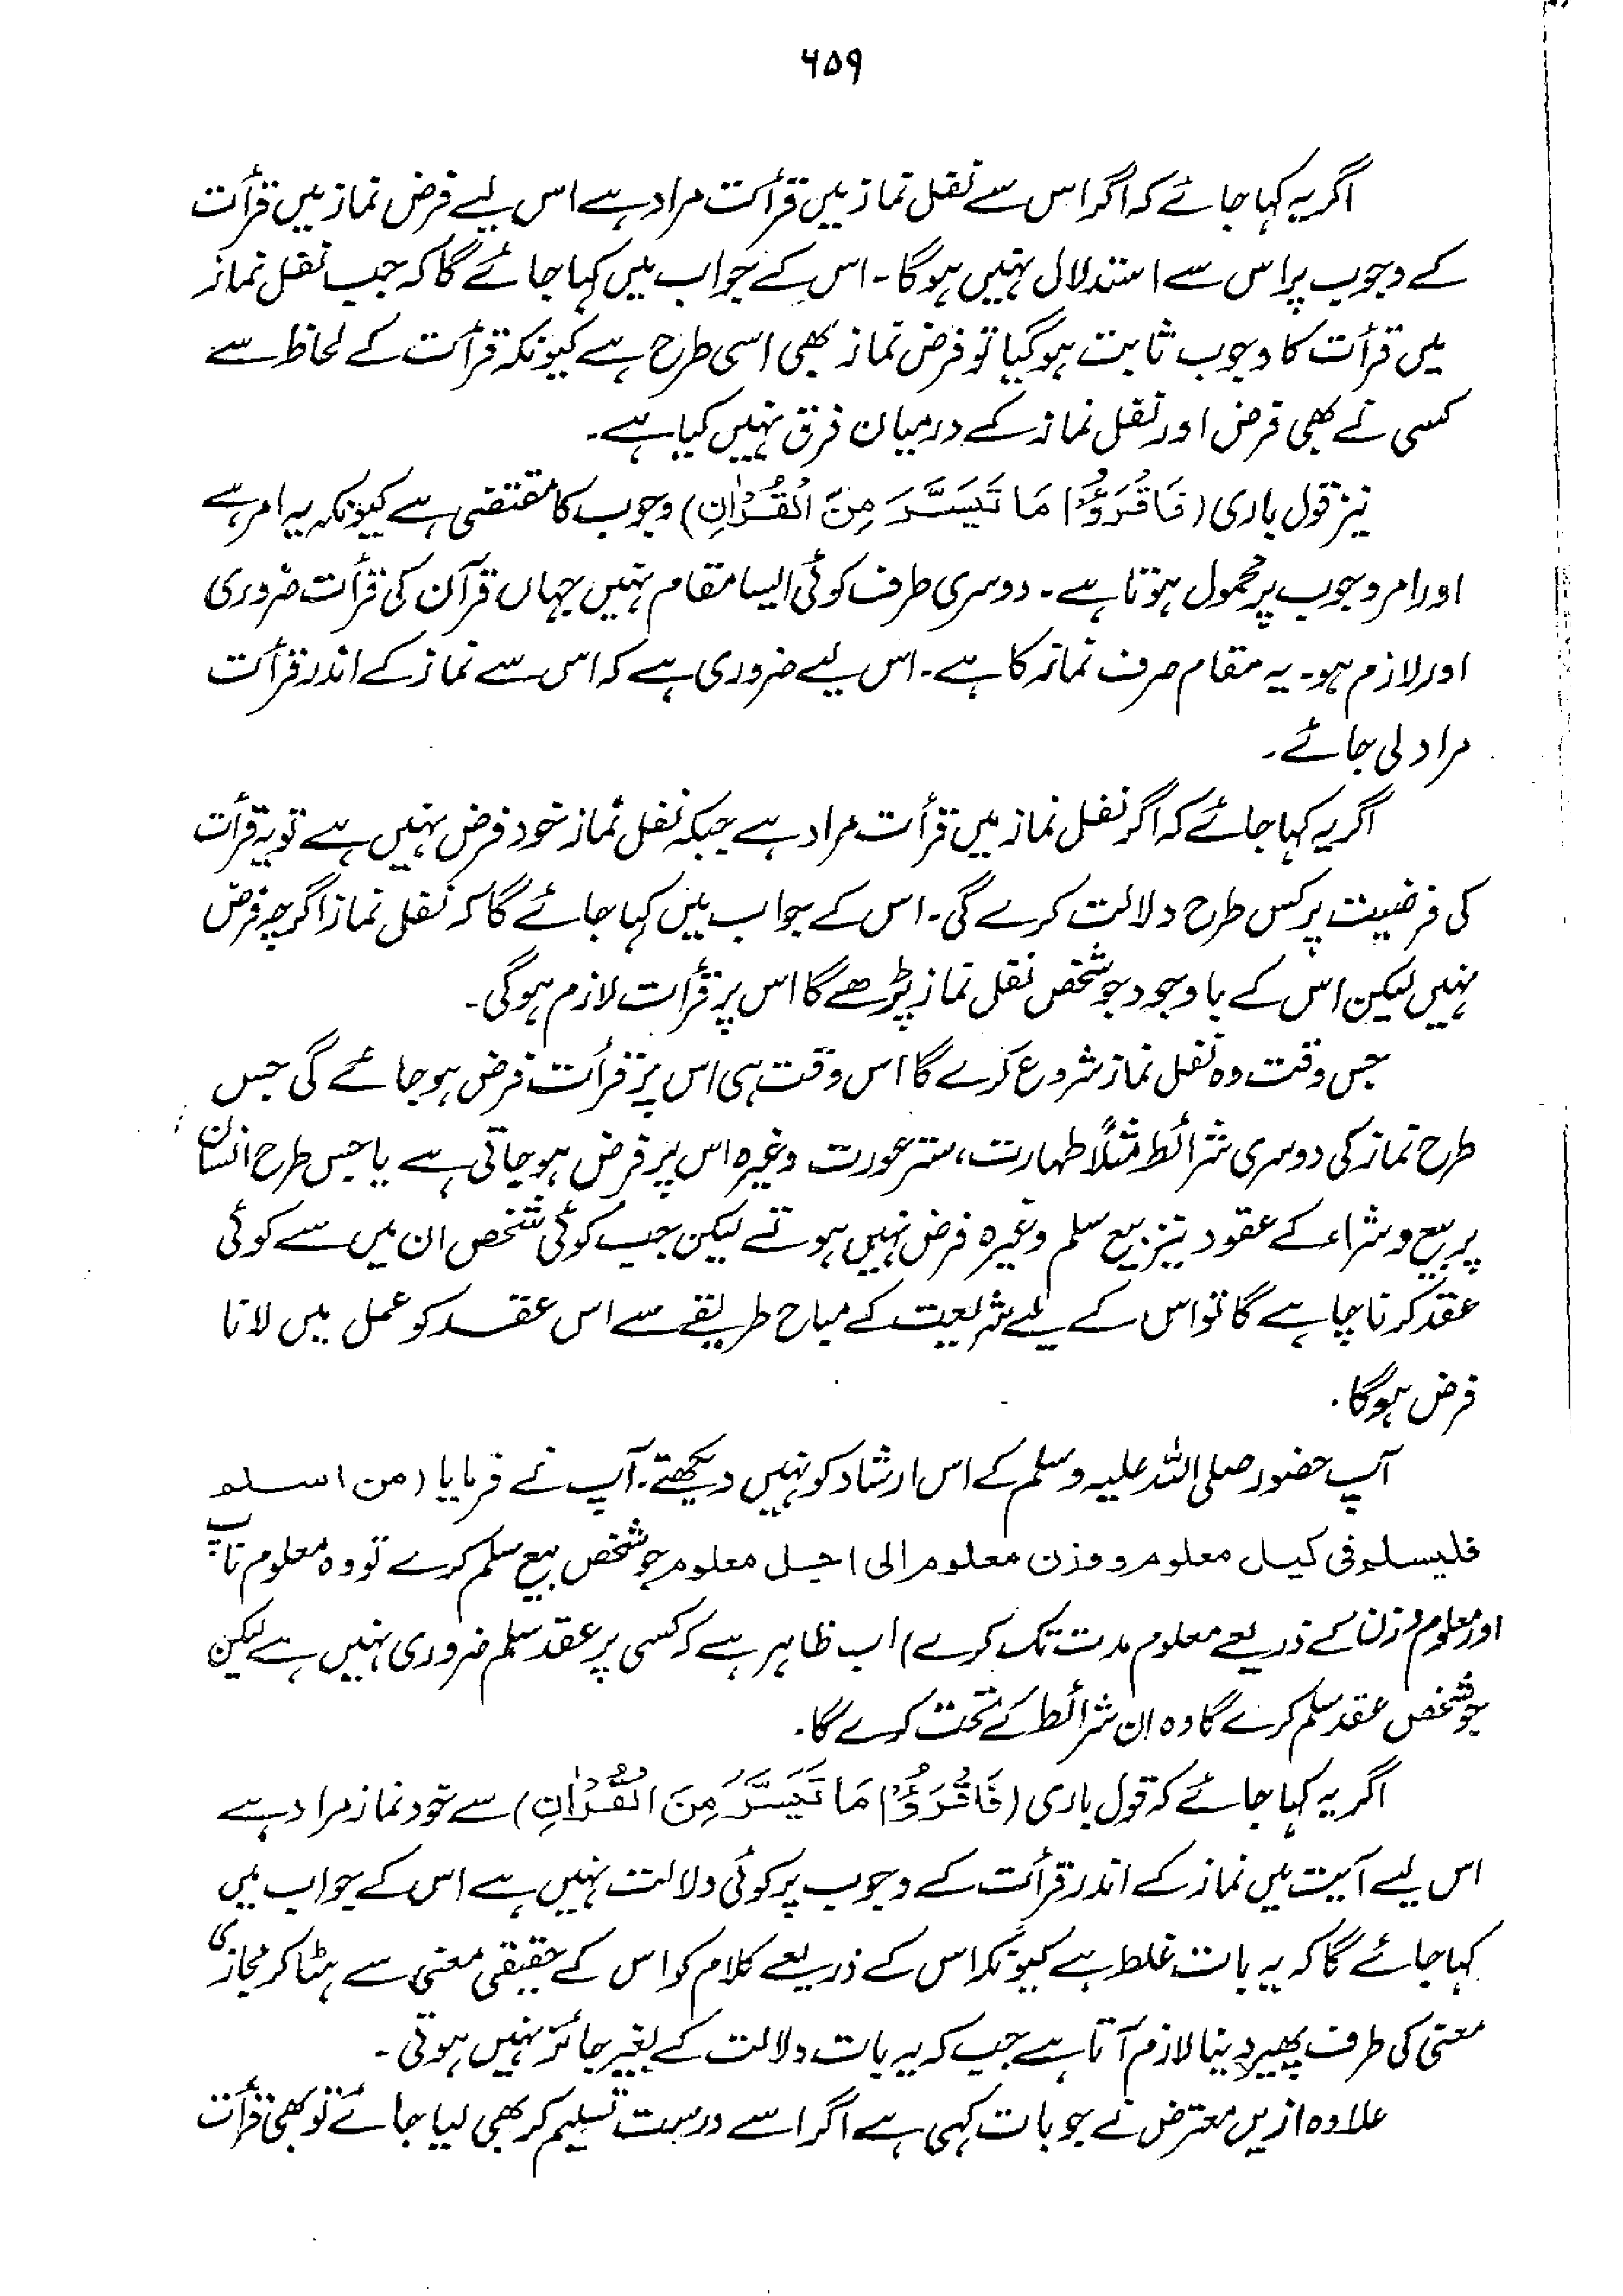 ۶۵۹
اگر یہ کہا جائے کہ اگر اس سے نفل نماز میں قرأت مراد ہے اس لیے فرض نماز میں قرأت
کے وجوب پر اس سے استدلال نہیں ہوگا۔ اس کے جواب میں کہا جائے گا کہ جب نفل نماز
میں قرأت کا وجوب ثابت ہوگیا تو فرض نماز بھی اسی طرح ہے کیونکہ قرأت کے لحاظ سے
کسی نے بھی فرض اور نفل نماز کے درمیان فرق نہیں کیا ہے۔
نیز قول باری (فَاقْرَؤُوْا مَا تَيَسَّرَ مِنَ الْقُرْاٰنِ) وجوب کا مقتضی ہے کیونکہ یہ امر ہے
اور امر وجوب پر محمول ہوتا ہے۔ دوسری طرف کوئی ایسا مقام نہیں جہاں قرآن کی قرأت ضروری
اور لازم ہو۔ یہ مقام صرف نماز کا ہے۔ اس لیے ضروری ہے کہ اس سے نماز کے اندر قرأت
مراد لی جائے۔
اگر یہ کہا جائے کہ اگر نفل نماز میں قرأت مراد ہے جبکہ نفل نماز خود فرض نہیں ہے تو یہ قرأت
کی فرضیت پر کس طرح دلالت کرے گی۔ اس کے جواب میں کہا جائے گا کہ نفل نماز اگرچہ فرض
نہیں لیکن اس کے باوجود جو شخص نفل نماز پڑھے گا اس پر قرأت لازم ہوگی۔
جس وقت وہ نفل نماز شروع کرے گا اس وقت ہی اس پر قرأت فرض ہو جائے گی جس
طرح نماز کی دوسری شرائط مثلاً طہارت، ستر عورت وغیرہ اس پر فرض ہو جاتی ہے یا جس طرح انسان
پر بیع و شراء کے عقود نیز بیع سلم وغیرہ فرض نہیں ہوتے لیکن جب کوئی شخص ان میں سے کوئی
عقد کرنا چاہے گا تو اس کے لیے شریعت کے مباح طریقے سے اس عقد کو عمل میں لانا
فرض ہوگا۔
آپ حضور صلی اللہ علیہ وسلم کے اس ارشاد کو نہیں دیکھتے۔ آپ نے فرمایا (من اسلم
فلیسلم فی کیل معلوم و وزن معلوم الی اجل معلوم جو شخص بیع سلم کرے تو وہ معلوم ناپ
اور معلوم وزن کے ذریعے معلوم مدت تک کرے) اب ظاہر ہے کہ کسی پر عقد سلم ضروری نہیں ہے لیکن
جو شخص عقد سلم کرے گا وہ ان شرائط کے تحت کرے گا۔
اگر یہ کہا جائے کہ قول باری (فَاقْرَؤُوْا مَا تَيَسَّرَ مِنَ الْقُرْاٰنِ) سے خود نماز مراد ہے
اس لیے آیت میں نماز کے اندر قرأت کے وجوب پر کوئی دلالت نہیں ہے اس کے جواب میں
کہا جائے گا کہ یہ بات غلط ہے کیونکہ اس کے ذریعے کلام کو اس کے حقیقی معنی سے ہٹا کر مجازی
معنی کی طرف پھیر دینا لازم آتا ہے جب کہ یہ بات دلالت کے بغیر جائز نہیں ہوتی۔
علاوہ ازیں معترض نے جو بات کہی ہے اگر اسے درست تسلیم کر بھی لیا جائے تو بھی قرأت